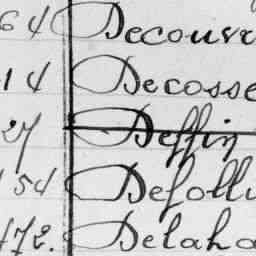 64 Decouvr
14 Decosse
27 Deffin
154 Defollu
472. Delaha